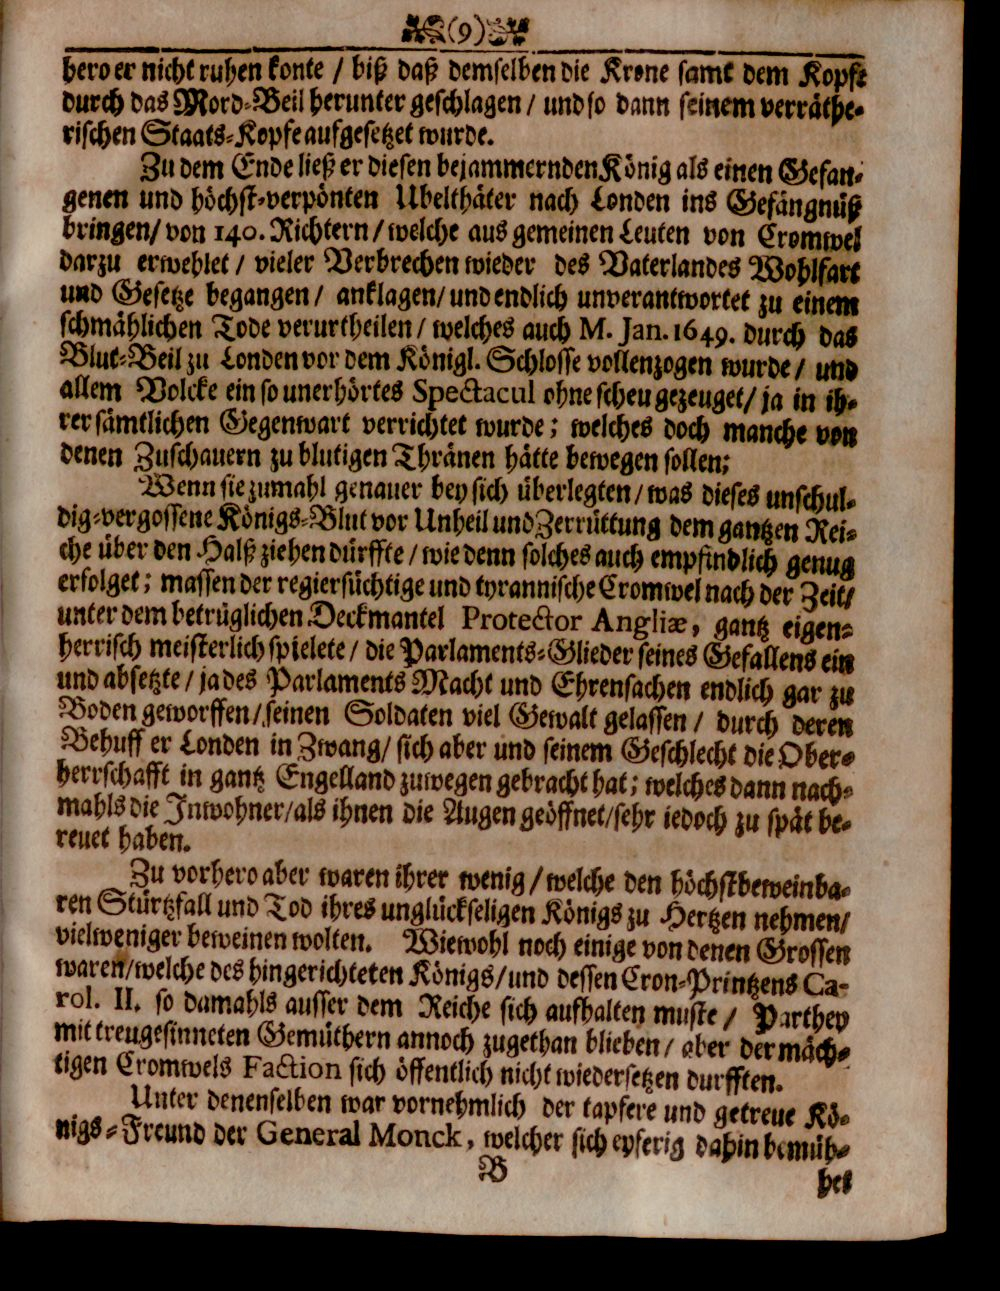 (9)
hero er nicht ruhen konte / biß daß demselben die Krone samt dem Kopfe
durch das Mord-Beil herunter geschlagen / und so dann seinem verräthe-
rischen Staats-Kopfe aufgesetzet wurde.
Zu dem Ende ließ er diesen bejammernden König als einen Gefan-
genen und höchst-verpönten Ubelthäter nach Londen ins Gefängnüß
bringen / von 140. Richtern / welche aus gemeinen Leuten von Cromwel
darzu erwehlet / vieler Verbrechen wieder des Vaterlandes Wohlfart
und Gesetze begangen / anklagen / und endlich unverantwortet zu einem
schmählichen Tode verurtheilen / welches auch M. Jan. 1649. durch das
Blut-Beil zu Londen vor dem Königl. Schlosse vollenzogen wurde / und
allem Volcke ein so unerhörtes Spectacul ohne scheu gezeuget / ja in ih-
rer sämtlichen Gegenwart verrichtet wurde; welches doch manche von
denen Zuschauern zu blutigen Thränen hätte bewegen sollen;
Wenn sie zumahl genauer bey sich überlegten / was dieses unschul-
dig-vergossene Königs-Blut vor Unheil und Zerrüttung dem gantzen Rei-
che über den Halß ziehen dürffte / wie denn solches auch empfindlich genug
erfolget; massen der regiersüchtige und tyrannische Cromwel nach der Zeit /
unter dem betrüglichen Deckmantel Protector Angliæ, gantz eigen-
herrisch meisterlich spielete / die Parlaments-Glieder seines Gefallens ein
und absetzte / ja des Parlaments Macht und Ehrensachen endlich gar zu
Boden geworffen / seinen Soldaten viel Gewalt gelassen / durch deren
Behuff er Londen in Zwang / sich aber und seinem Geschlecht die Ober-
herrschafft in gantz Engelland zuwegen gebracht hat; welches dann nach-
mahls die Inwohner / als ihnen die Augen geöffnet / sehr iedoch zu spät be-
reuet haben.
Zu vorhero aber waren ihrer wenig / welche den höchstbeweinba-
ren Stürtzfall und Tod ihres unglückseligen Königs zu Hertzen nehmen /
vielweniger beweinen wolten. Wiewohl noch einige von denen Grossen
waren / welche des hingerichteten Königs / und dessen Cron-Printzens Ca-
rol. II. so damahls ausser dem Reiche sich aufhalten muste / Parthey
mit treugesinneten Gemüthern annoch zugethan blieben / aber der mäch-
tigen Cromwels Faction sich öffentlich nicht wiedersetzen durfften.
Unter denenselben war vornehmlich der tapfere und getreue Kö-
nigs-Freund der General Monck, welcher sich eyferig dahin bemüh-
B
het